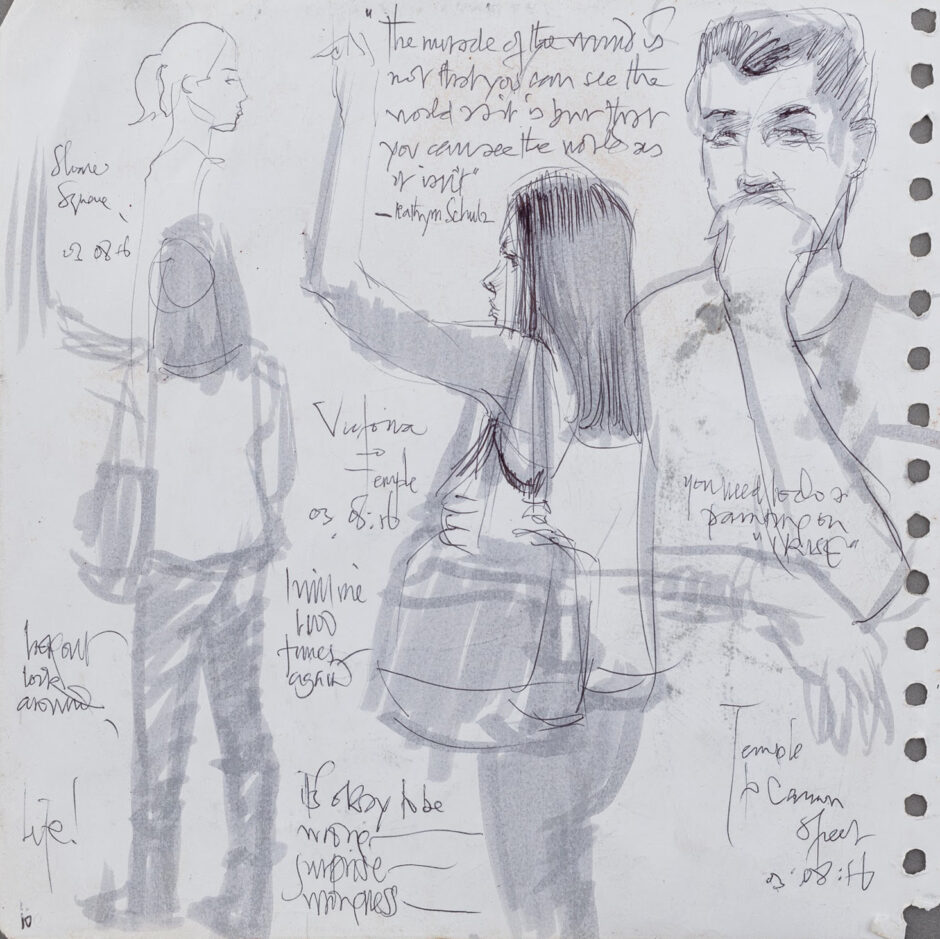 "the miracle of the mind is
not that you can see the
world as it is but that
you can see the world as
it isn't"
- Kathryn Schulz
Sloane
Square
03 08 16
Victoria
to
Temple
03. 08:16
you need to do a
painting on
two
times
again
look
around
Life!
it's okay to be
wrong
surprise
wrongness
Temple
to Cannon
Street
03:08:16
10